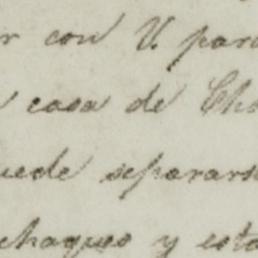 r con V. para
casa de Cha
uede separars
chaques y esta